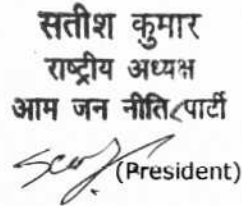 सतीश कुमार
राष्ट्रीय अध्यक्ष
आम जन नीति पार्टी
(President)